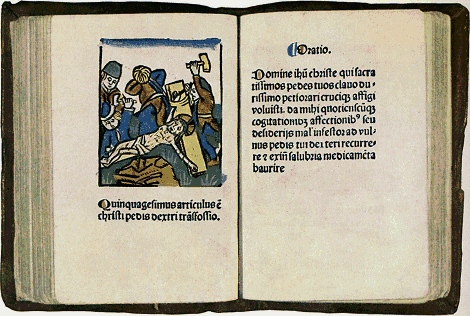 Quinquagesimus articulus ē
christi pedis dextri trāsfossio.
Oratio.
Domine ihū christe qui sacra
tissimos pedes tuos clauo du-
rissimo perforari crucique affigi
voluisti. da mihi quotienscūq
cogitationū affectionibꝰ seu
desiderijs mal infestor ad vul
nus pedis tui dextri recurre
re et exīn salubria medicamēta
haurire